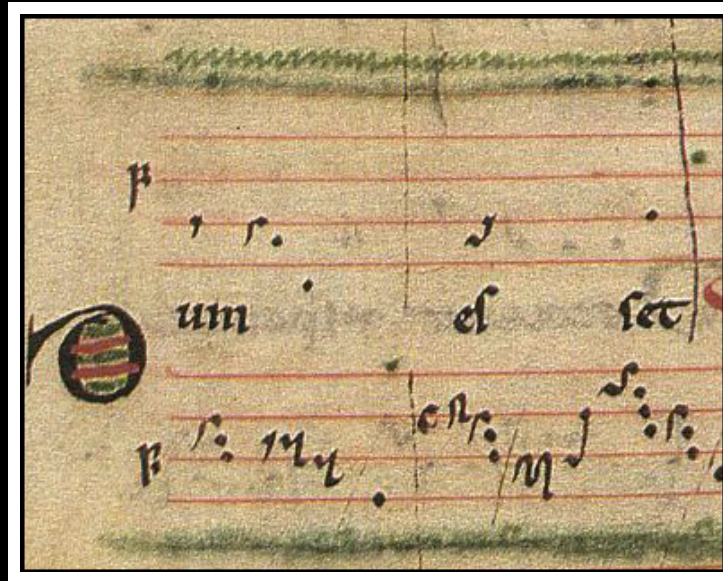 Dum eſ ſet